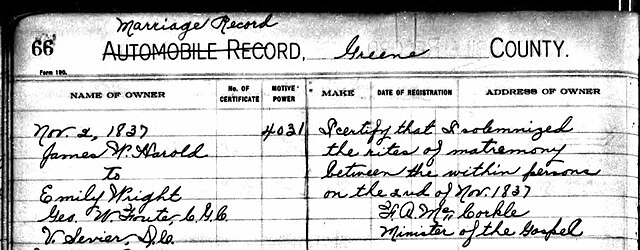 Marriage Record
66 AUTOMOBILE RECORD, Greene COUNTY.
Form 100.
NAME OF OWNER No. OF CERTIFICATE MOTIVE POWER MAKE DATE OF REGISTRATION ADDRESS OF OWNER
Nov. 2, 1837 4031 I certify that I solemnized
James W. Harold the rites of matremony
to between the within persons
Emily Wright on the 2nd of Nov. 1837
Geo. W. Foute C.G.C. F. A. McCorkle
V. Sevier D.C. Minister of the Gospel